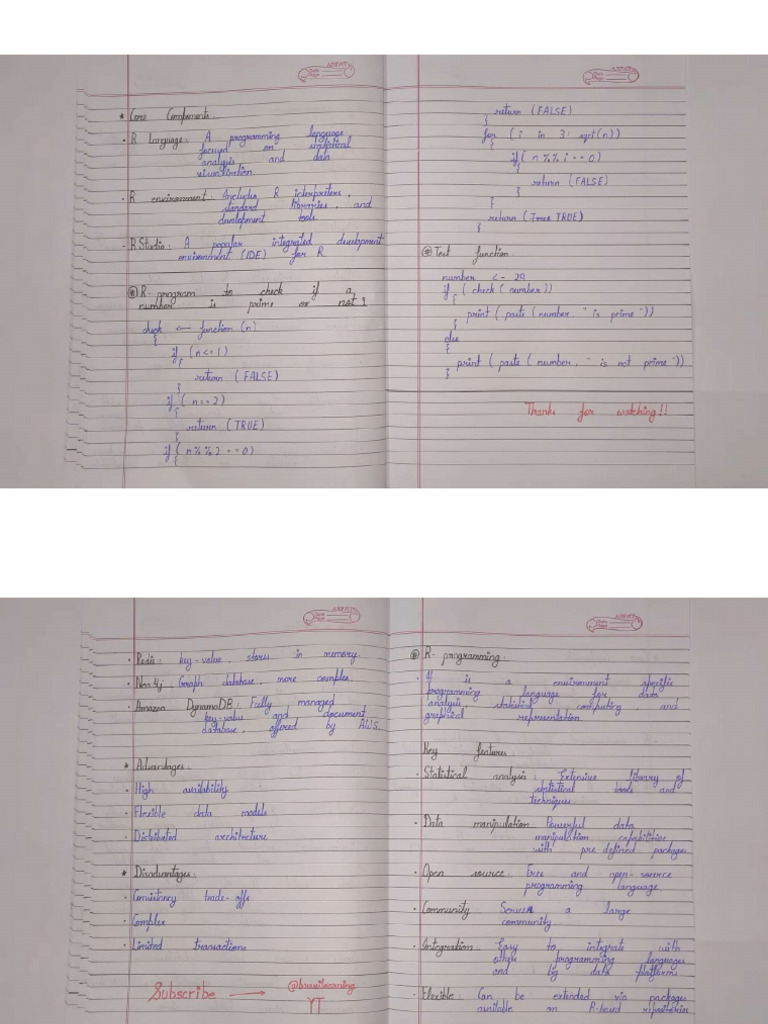 * Core Components.
• R Language: A programming language
focused on statistical
analysis and data
visualization.
• R environment: Includes R interpreters,
standard libraries, and
development tools
• R Studio: A popular integrated development
environment (IDE) for R
R- program to check if a
number is prime or not?
check ← function (n)
{
if (n<=1)
{
return (FALSE)
}
if (n==2)
{
return (TRUE)
}
if (n%%2 ==0)
{
return (FALSE)
}
for (i in 3: sqrt(n))
{
if (n%%i==0)
{
return (FALSE)
}
}
return (TRUE)
}
Test function.
number <- 29
if (check (number))
{
print (paste (number, "is prime"))
}
else
{
print (paste (number, "is not prime"))
}
Thanks for watching!!
• Redis: key-value, stores in memory.
• Neo4j: Graph database, more complex.
• Amazon DynamoDB: Fully managed
key-value and document
database, offered by AWS.
* Advantages.
• High availability
• Flexible data models
• Distributed architecture
* Disadvantages.
• Consistency trade-offs
• Complex
• Limited transactions
Subscribe →
YT
R- programming.
• It is a environment specific
programming language for data
analysis, statistical computing, and
graphical representation.
Key features.
• Statistical analysis: Extensive library of
statistical tools and
techniques
• Data manipulation: Powerful data
manipulation capabilities
with pre-defined packages.
• Open source: Free and open-source
programming language.
• Community: a large
community.
• Integration: Easy to integrate with
other programming languages
and big data platforms
• Flexible: Can be extended via packages
available on R-based repositories